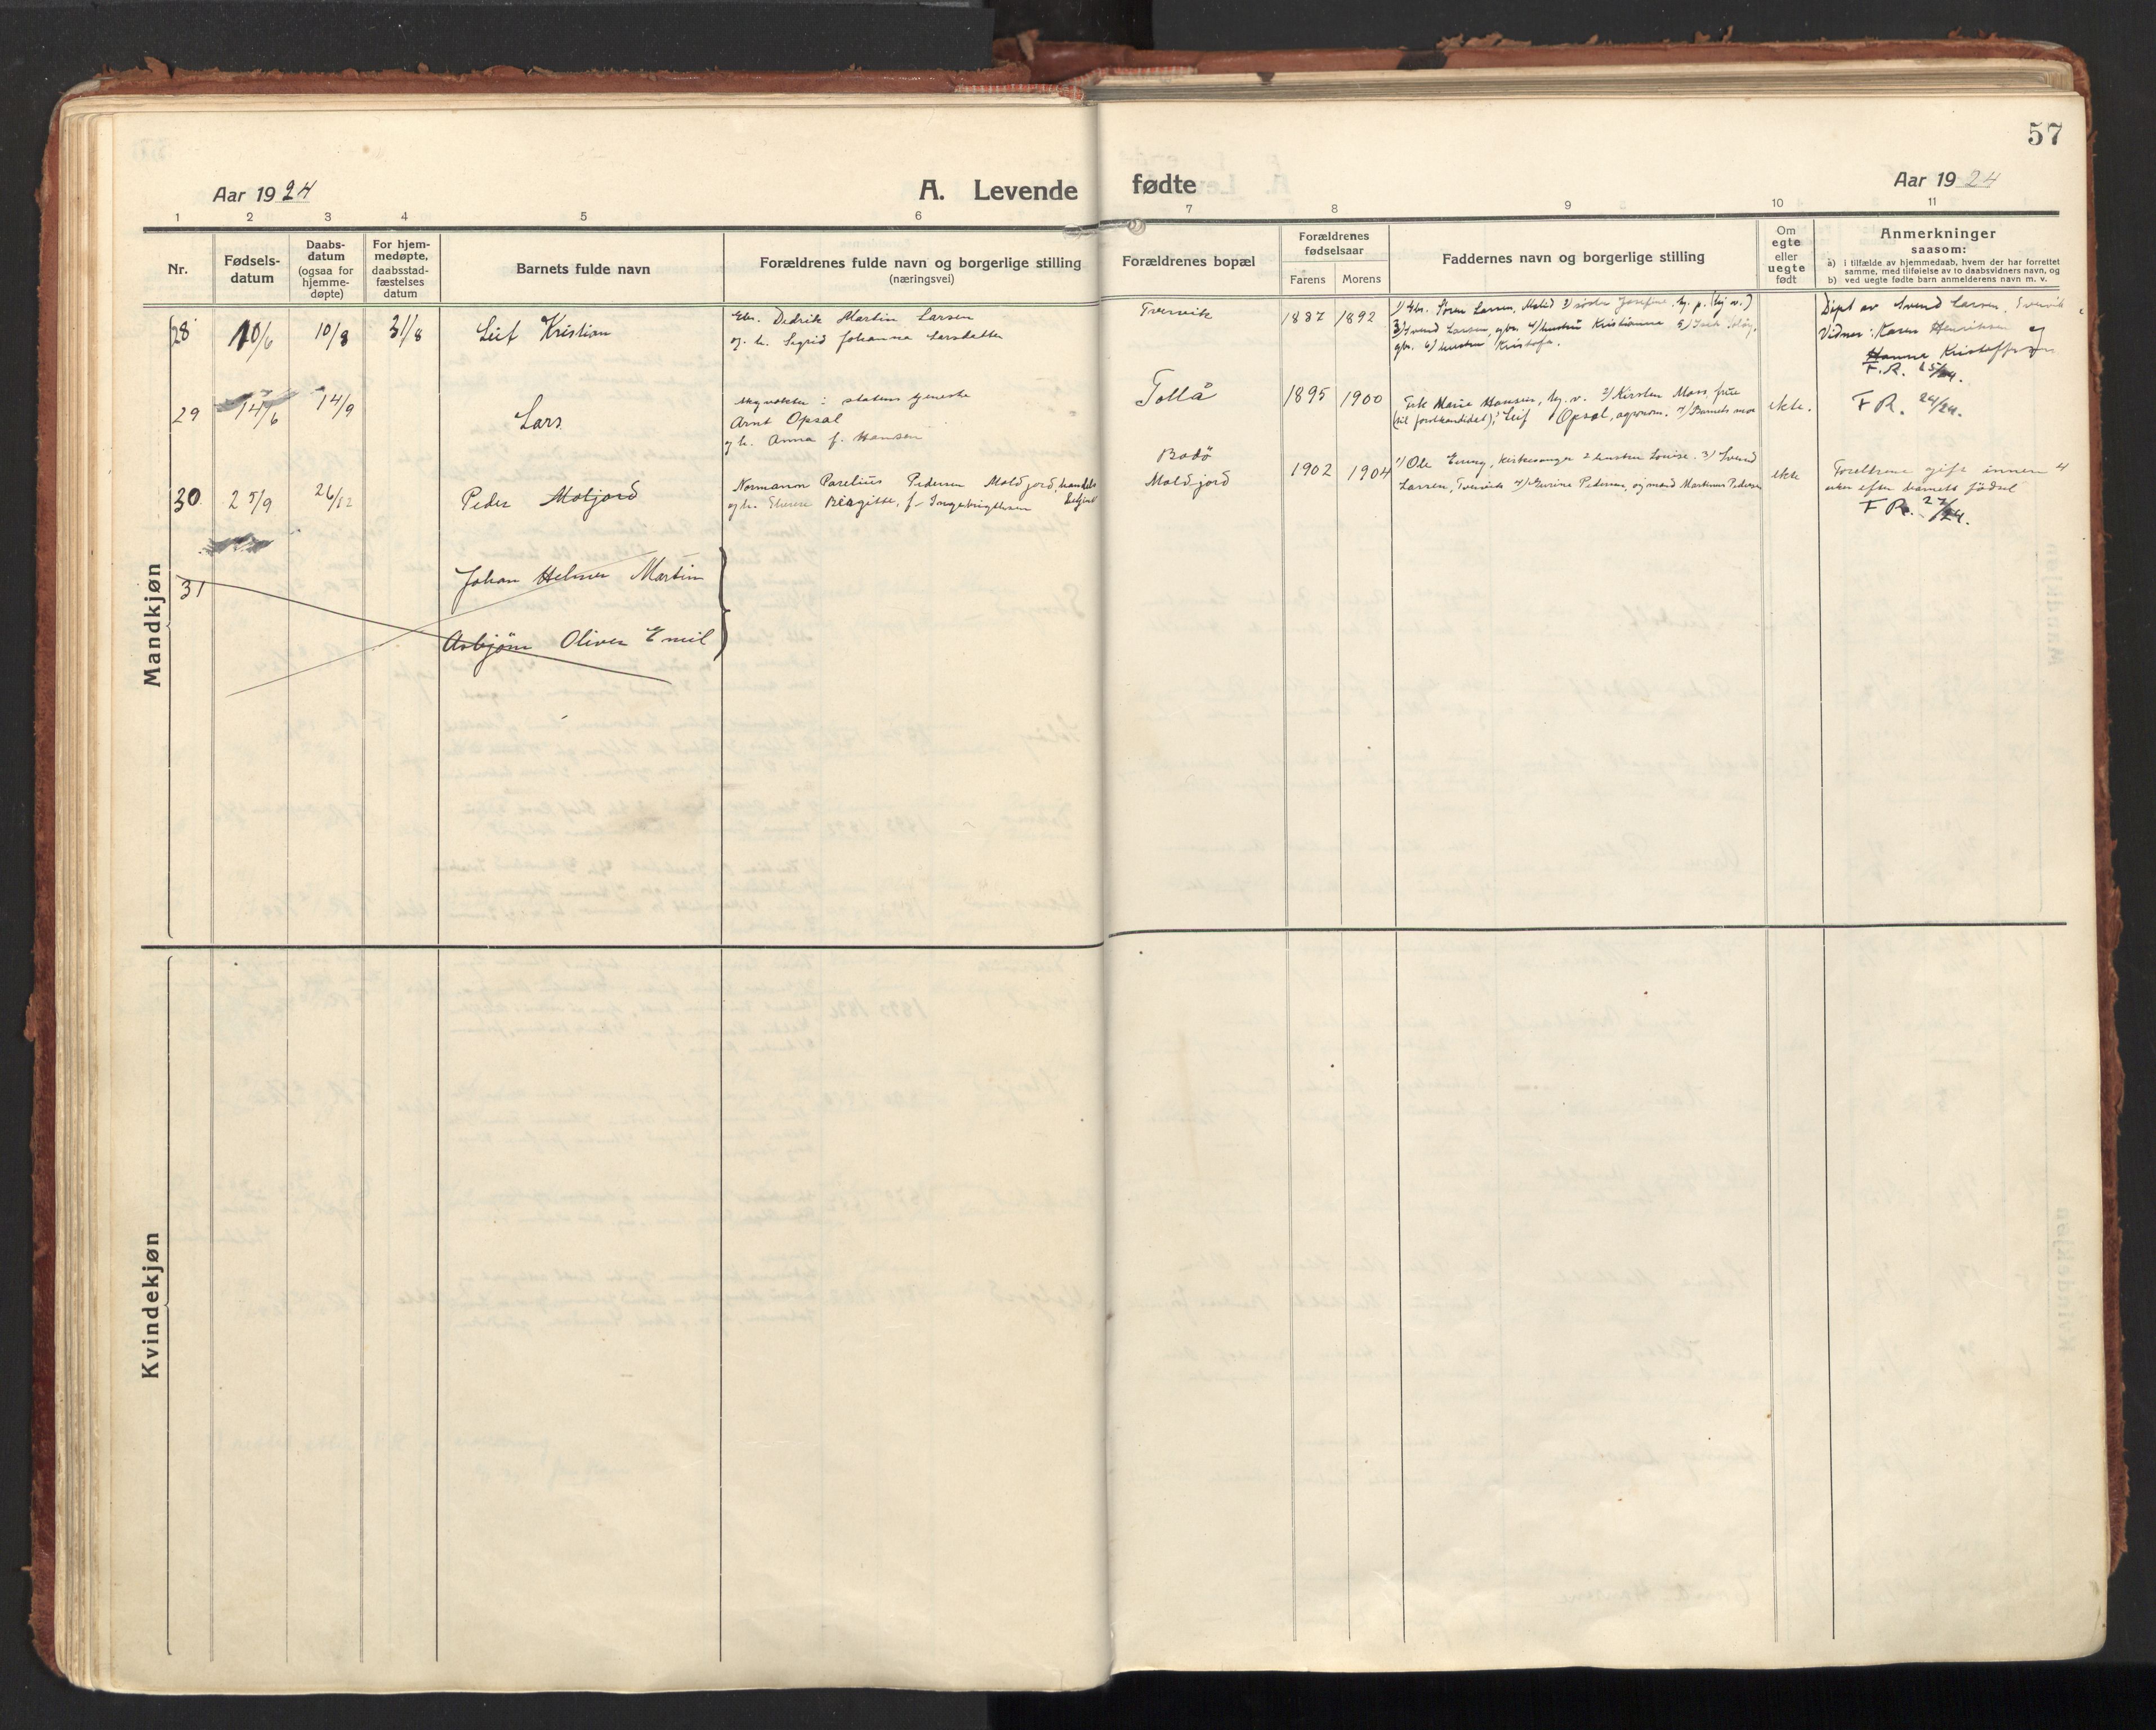 57
Aar 1924
A. Levende fødte
Aar 1924
1 2 3 4 5 6 7 8 9 10 11
Nr.
Fødsels-
datum
Daabs-
datum
(ogsaa for
hjemme-
døpte)
For hjem-
medøpte,
daabsstad-
fæstelses
datum
Barnets fulde navn
Forældrenes fulde navn og borgerlige stilling
(næringsvei)
Forældrenes bopæl
Forældrenes
fødselsaar
Farens Morens
Faddernes navn og borgerlige stilling
Om
egte
eller
uegte
født
Anmerkninger
saasom:
a) i tilfælde av hjemmedaab, hvem der har forrettet
samme, med tilføielse av to daabsvidners navn, og
b) ved uegte fødte barn anmelderens navn m. v.
Mandkjøn
28 10/6 10/8 31/8 Leif Kristian
Gbr. Didrik Martin Larsen
og h. Sigrid Johanna Larsdatter
Tverrvik
1887 1892
1) Gbr. Sören Larsen, 2) søster Josefine, hj. p. (hj v.)
3) Svend Larsen, gbr. 4) hustru Kristianna 5)
gbr. 6) hustru Kristofa.
Döpt av Svend Larsen, Tverrvik
Vidner: Karen Henriksen og
Hanna Kristoffersen
F.R. 25/24.
29 14/6 14/9 Lars
statens tjeneste
Arnt Opsal
og h. Anna f. Hansen
Tollå
1895 1900
Frk Marie Hansen, hj. v. 2) Kirsten Moss, frue
(til forstkandidat), Leif Opsal, agronom. 4) Barnets mor
ekte.
F R. 24/24.
30 25/9 26/12 Peder Moljord
Normann Parelius Pedersen Moldjord, handels
og h. Elverse Birgitte, f. Ingebrigtsen betjent
Bodö
Moldjord
1902 1904
1) Ole Evjen, kirkesanger 2 hustru Louise. 3) Svend
Larsen, Tverrvik 4) Gurine Pedersen, og mand Martinus Pedersen
ekte
Foreldrene gift innen 4
uker efter barnets födsel
F R. 27/24.
31
Johan Helmer Martin
Asbjørn Oliver Emil
Kvindekjøn